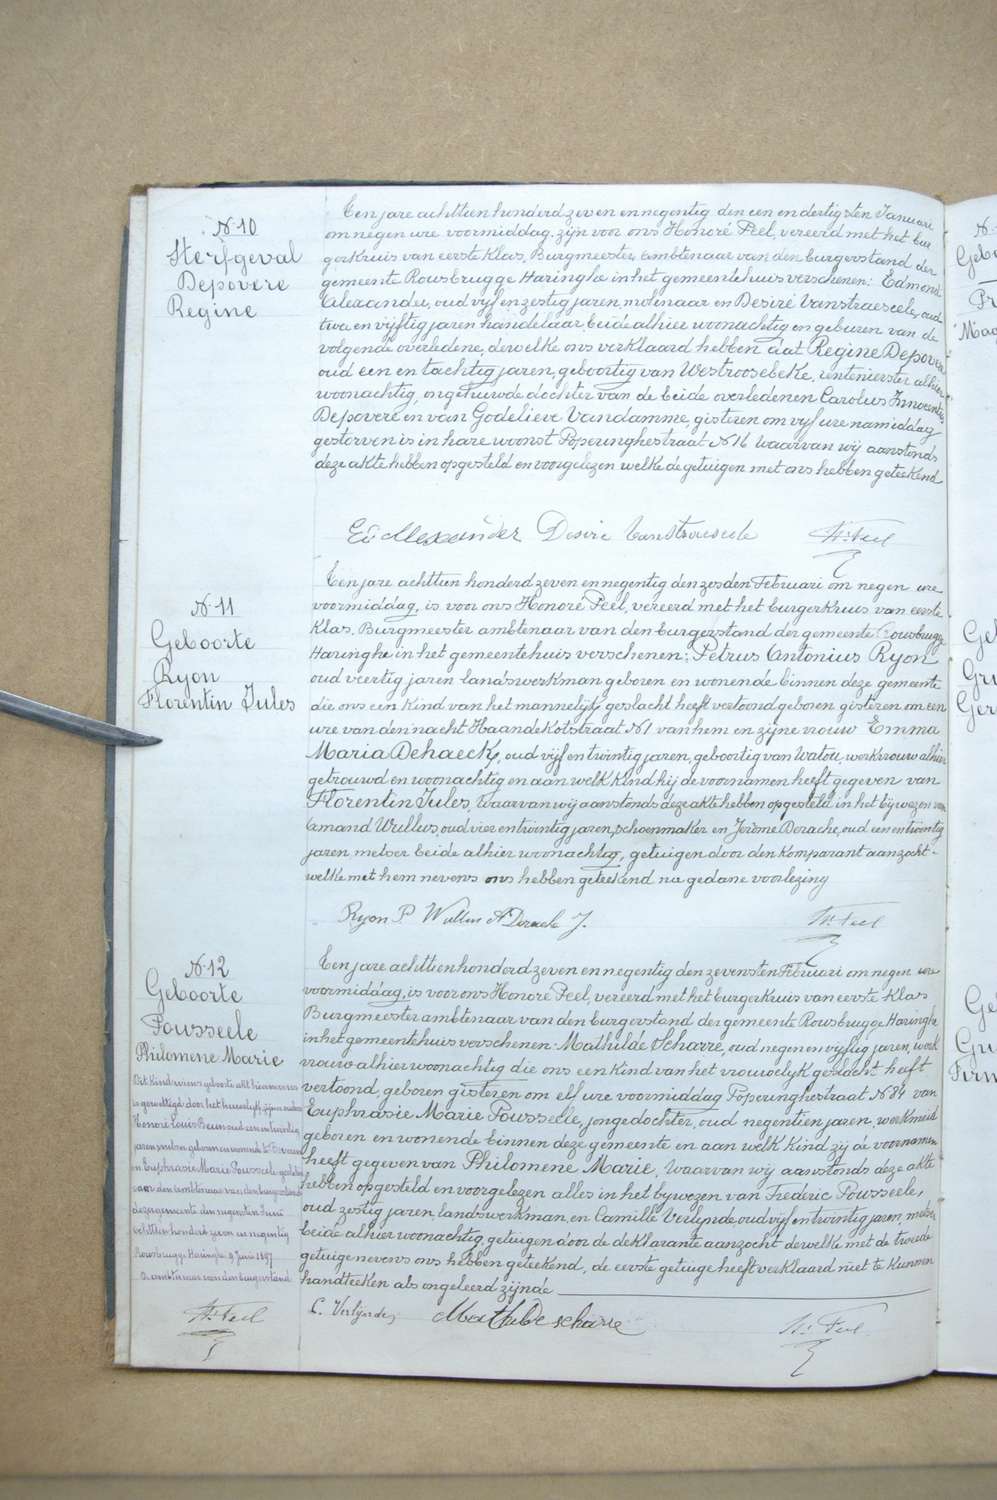 N. 10
Sterfgeval
Depovere
Regine
Een jare achttien honderd zeven en negentig den een en dertigsten Januari
om negen ure voormiddag, zijn voor ons Honoré Peel, vereerd met het bur
gerkruis van eerste Klas, Burgmeester, ambtenaar van den burgerstand der
gemeente Rousbrugge Haringhe in het gemeentehuis verschenen: Edmond
Alexander, oud vijf en zestig jaren, molenaar en Desiré Vanstraeseele, oud
twee en vijftig jaren handelaar, beide alhier woonachtig en geburen van de
volgende overledene, dewelke ons verklaard hebben dat Regine Depovere
oud een en tachtig jaren, geboortig van Westroosebeke, rentenierster alhier
woonachtig, ongehuwde dochter van de beide overledenen Carolus Innocentius
Depovere en van Godelieve Vandamme, gisteren om vijf ure namiddag
gestorven is in hare woonst Poperinghestraat N 16 Waarvan wij aanstonds
deze akte hebben opgesteld en voorgelezen welke de getuigen met ons hebben geteekend
Ed Alexander Desiré Vanstraeseele Hré Peel
N. 11
Geboorte
Ryon
Florentin Jules
Een jare achttien honderd zeven en negentig den zesden Februari om negen ure
voormiddag, is voor ons Honoré Peel, vereerd met het burgerkruis van eerste
Klas, Burgmeester ambtenaar van den burgerstand der gemeente Rousbrugge
Haringhe in het gemeentehuis verschenen: Petrus Antonius Ryon
oud veertig jaren landswerkman geboren en wonende binnen deze gemeente
die ons een kind van het mannelijk geslacht heeft vertoond geboren gisteren om een
ure van den nacht Haandekotstraat N 1 van hem en zijne vrouw Emma
Maria Dehaeck, oud vijf en twintig jaren, geboortig van Watou, werkvrouw alhier
getrouwd en woonachtig en aan welk kind hij de voornamen heeft gegeven van
Florentin Jules, Waarvan wij aanstonds deze akte hebben opgesteld in het bijwezen van
Amand Wullus, oud vier en twintig jaren, schoenmaker en Jerôme Derache, oud een en twintig
jaren, metser beide alhier woonachtig, getuigen door den Komparant aanzocht -
welke met hem nevens ons hebben geteekend na gedane voorlezing
Ryon P Wullus A Derache J. Hré Peel
N. 12
Geboorte
Pousseele
Philomene Marie
Een jare achttien honderd zeven en negentig den zevensten Februari om negen ure
voormiddag, is voor ons Honoré Peel, vereerd met het burgerkruis van eerste Klas
Burgmeester ambtenaar van den burgerstand der gemeente Rousbrugge Haringhe
in het gemeentehuis verschenen: Mathilde Scharre, oud negen en vijftig jaren, werk
vrouw alhier woonachtig die ons een kind van het vrouwelijk geslacht heeft
vertoond, geboren gisteren om elf ure voormiddag Poperinghestraat N 84 van
Euphrasie Marie Pousseele, jongedochter, oud negentien jaren, werkmeid
geboren en wonende binnen deze gemeente en aan welk kind zij de voornamen
heeft gegeven van Philomene Marie, Waarvan wij aanstonds deze akte
hebben opgesteld en voorgelezen alles in het bijwezen van Frederic Pousseele,
oud zestig jaren, landswerkman, en Camille Verlynde oud vijf en twintig jaren, metser
beide alhier woonachtig, getuigen door de deklarante aanzocht dewelke met de tweede
getuige nevens ons hebben geteekend, de eerste getuige heeft verklaard niet te kunnen
handteeken als ongeleerd zijnde
Dit Kind wiens geboorte akt hiernevens
is gewettigd door het huwelijk tusschen
Honoré Louis een en twintig
jaren
en Euphrasie Marie Pousseele
voor den ambtenaar van den burgerstand
dezer gemeente den negensten Juni
achttien honderd zeven en negentig
Rousbrugge Haringhe 9 Juni 1897
De ambtenaar van den burgerstand
Hré Peel
C. Verlynde Mathilde scharre Hré Peel